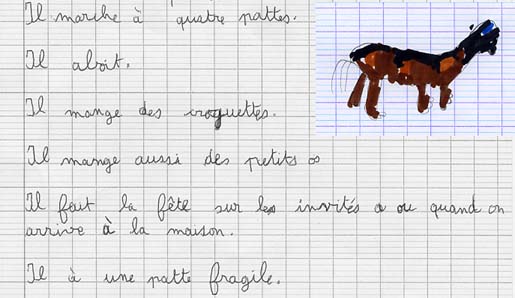 Il marche à quatre pattes.
Il aboit.
Il mange des croquettes.
Il mange aussi des petits os
Il fait la fête sur les invités a ou quand on
arrive à la maison.
Il à une patte fragile.